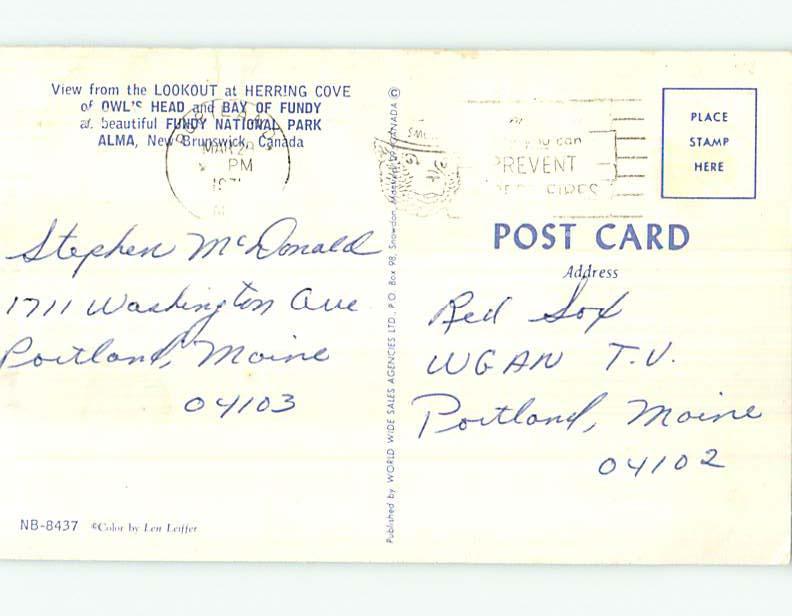 View from the LOOKOUT at HERRING COVE
of OWL'S HEAD and BAY OF FUNDY
at beautiful FUNDY NATIONAL PARK
ALMA, New Brunswick, Canada
PM
Stephen McDonald
1711 Washington Ave
Portland, Maine
04103
NB-8437 ©Color by Len Leiffer
Published by WORLD WIDE SALES AGENCIES LTD., P.O. Box 98, Snowdon, CANADA ©
you can
PREVENT
FIRES
PLACE
STAMP
HERE
POST CARD
Address
Red Sox
WGAN T.V.
Portland, Maine
04102